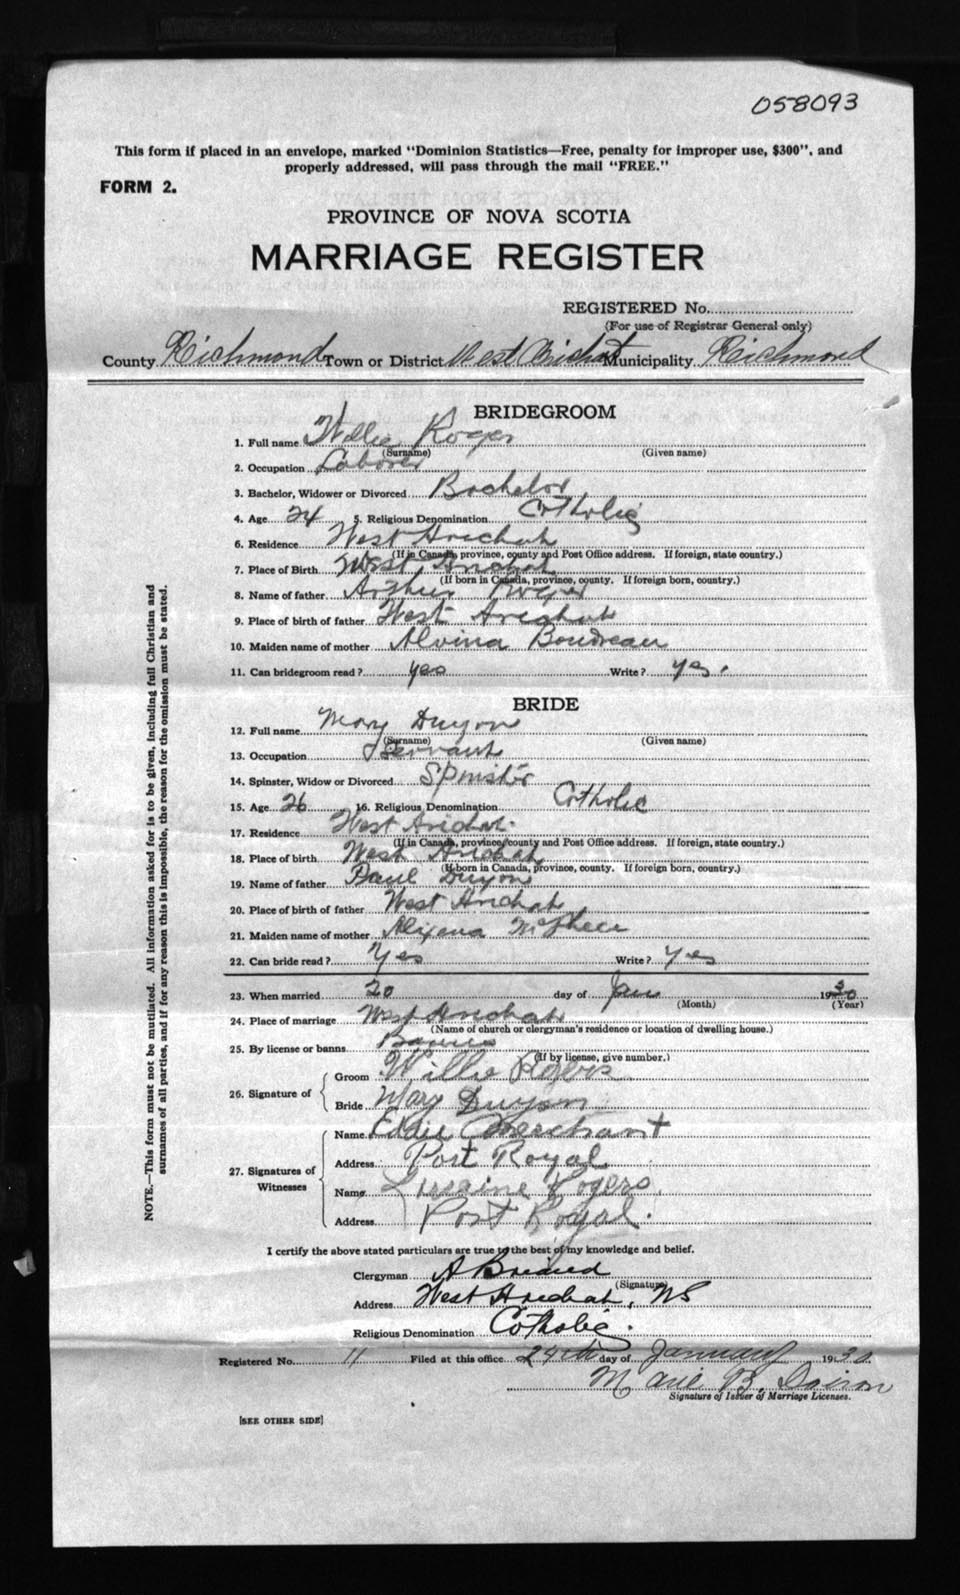 058093
This form if placed in an envelope, marked "Dominion Statistics—Free, penalty for improper use, $300", and
properly addressed, will pass through the mail "FREE."
FORM 2.
PROVINCE OF NOVA SCOTIA
MARRIAGE REGISTER
REGISTERED No.
(For use of Registrar General only)
County Richmond Town or District West Arichat Municipality Richmond
BRIDEGROOM
1. Full name Willie Roger
(Surname) (Given name)
2. Occupation Laborer
3. Bachelor, Widower or Divorced Bachelor
4. Age 24 5. Religious Denomination Catholic
6. Residence West Arichat
(If in Canada, province, county and Post Office address. If foreign, state country.)
7. Place of Birth West Arichat
(If born in Canada, province, county. If foreign born, country.)
8. Name of father Arthur Roger
9. Place of birth of father West Arichat
10. Maiden name of mother Alvina Boudreau
11. Can bridegroom read? yes Write? yes.
BRIDE
12. Full name Mary Duyon
(Surname) (Given name)
13. Occupation Servant
14. Spinster, Widow or Divorced Spinster
15. Age 26 16. Religious Denomination Catholic
17. Residence West Arichat.
(If in Canada, province, county and Post Office address. If foreign, state country.)
18. Place of birth West Arichat
(If born in Canada, province, county. If foreign born, country.)
19. Name of father Paul Duyon
20. Place of birth of father West Arichat
21. Maiden name of mother Alexena
22. Can bride read? Yes Write? Yes
23. When married 20 day of Jan 1930
(Month) (Year)
24. Place of marriage West Arichat
(Name of church or clergyman's residence or location of dwelling house.)
25. By license or banns Banns
(If by license, give number.)
26. Signature of
Groom Willie Rogers
Bride Mary Duyon
27. Signatures of Witnesses
Name Eddie Merchant
Address Port Royal
Name Rogers.
Address Port Royal.
I certify the above stated particulars are true to the best of my knowledge and belief.
Clergyman A Briand
(Signature)
Address West Arichat, NS
Religious Denomination Catholic.
Registered No. 11 Filed at this office 24th day of January 1930
Marie B. Doiron
Signature of Issuer of Marriage Licenses.
[SEE OTHER SIDE]
NOTE.—This form must not be mutilated. All information asked for is to be given, including full Christian and
surnames of all parties, and if for any reason this is impossible, the reason for the omission must be stated.